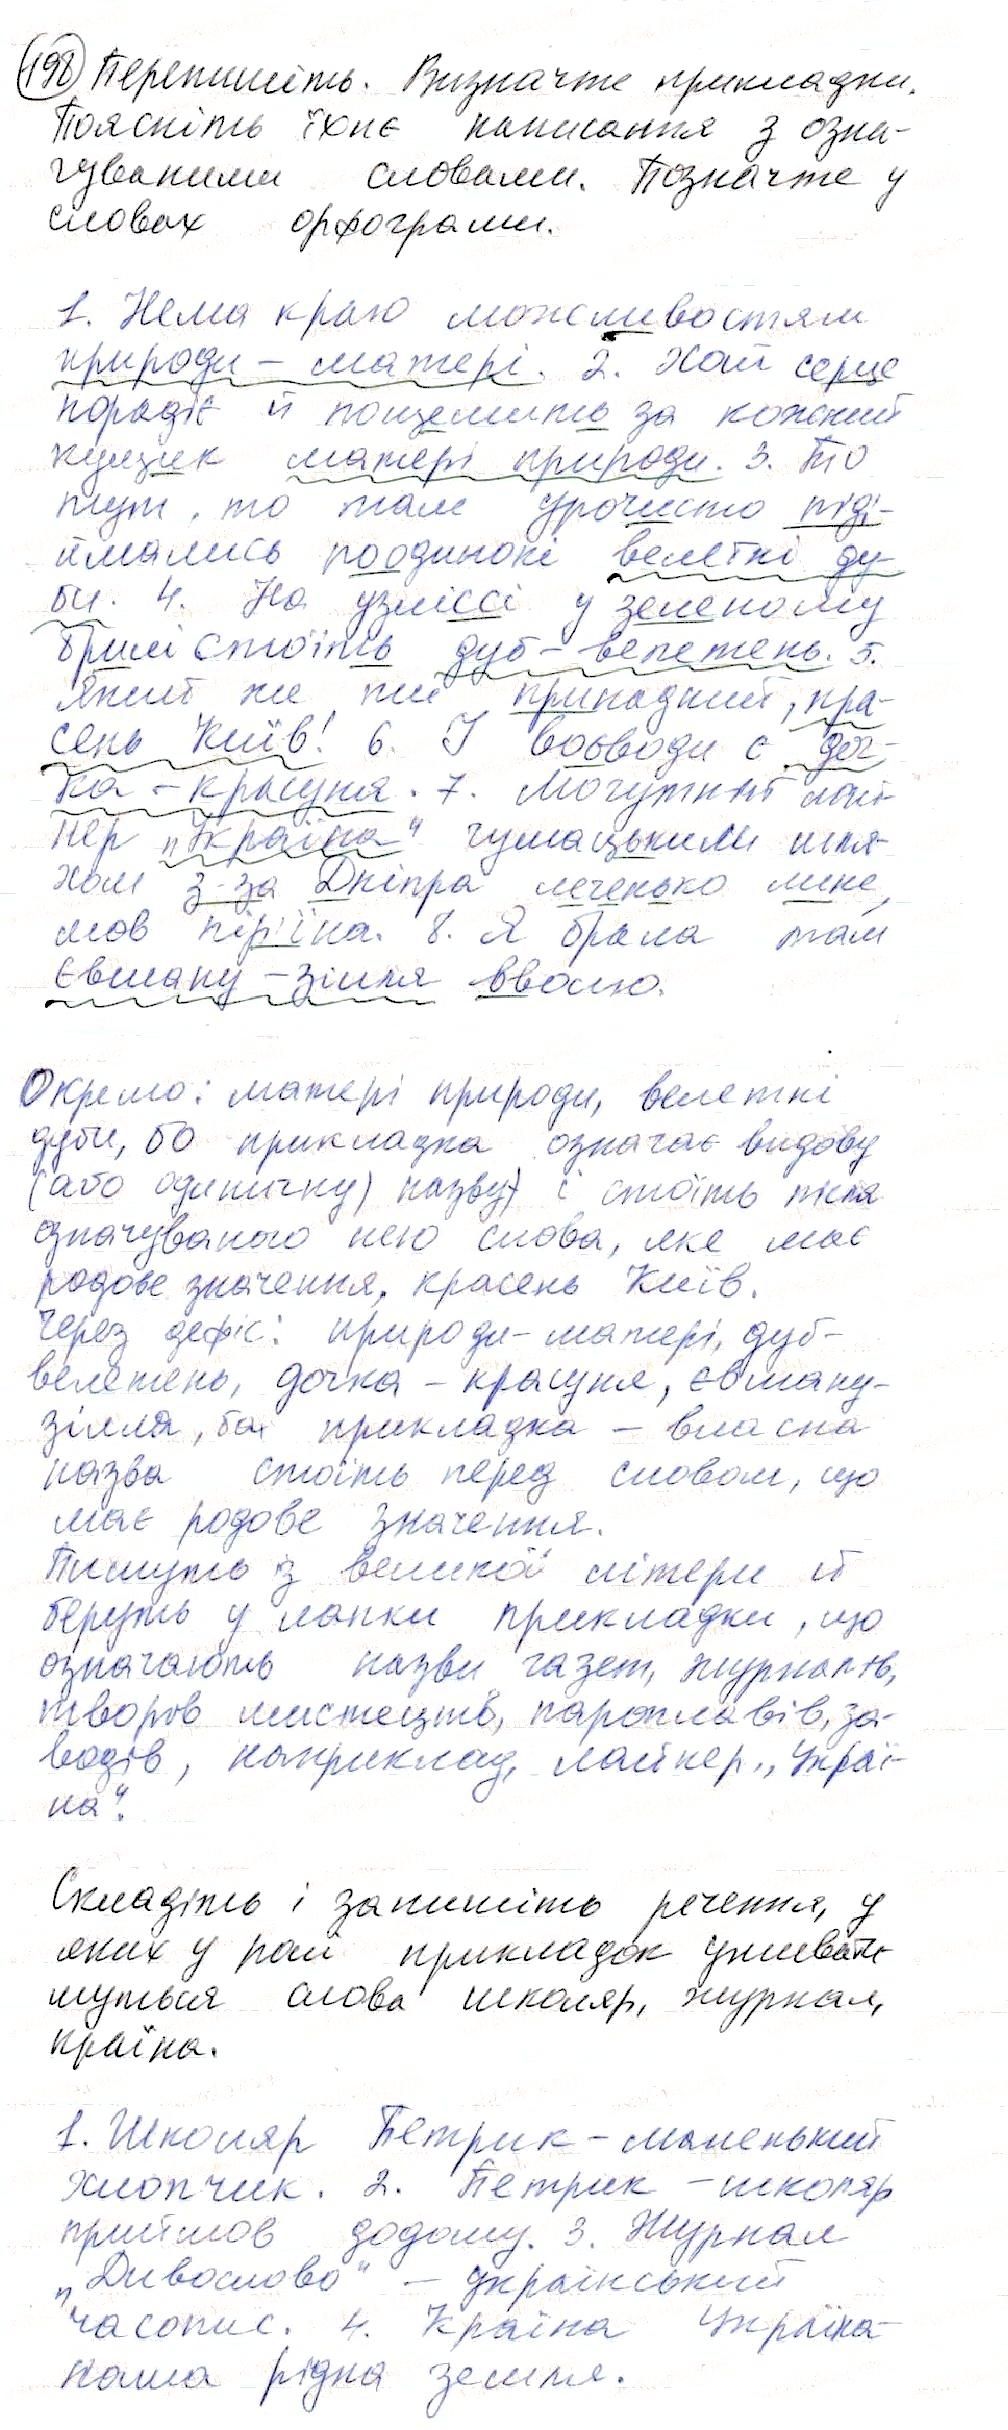 198 Перепишіть. Визначте прикладки.
Поясніть їхнє написання з озна-
чуваними словами. Позначте у
словах орфограми.
1. Нема краю можливостям
природи - матері. 2. Хай серце
порадіє й пощемить за кожний
кущик матері природи. 3. То
тут, то там урочисто піді-
ймались поодинокі велетні ду-
би. 4. На узліссі у зеленому
брилі стоїть дуб - велетень. 5.
Який же ти принадний, кра-
сень Київ! 6. У воєводи є доч-
ка - красуня. 7. Могутній лай-
нер „Україна" чумацьким шля-
хом з-за Дніпра легенько лине,
мов пір'їна. 8. Я брала там
Євшану - зілля вволю.
Окремо: матері природи, велетні
дуби, бо прикладка означає видову
(або одиничну) назву) і стоїть після
означуваного нею слова, яке має
родове значення, красень Київ.
Через дефіс: природи - матері, дуб-
велетень, дочка - красуня, євшану-
зілля, бо прикладка - власна
назва стоїть перед словом, що
має родове значення.
Пишуть із великої літери й
беруть у лапки прикладки, що
означають назви газет, журналів,
творів мистецтв, пароплавів, за-
водів, наприклад, лайнер „Украї-
на".
Складіть і запишіть речення, у
яких у ролі прикладок уживати-
муться слова школяр, журнал,
країна.
1. Школяр Петрик - маленький
хлопчик. 2. Петрик - школяр
прийшов додому. 3. Журнал
„Дивослово" - український
часопис. 4. Країна Україна-
наша рідна земля.